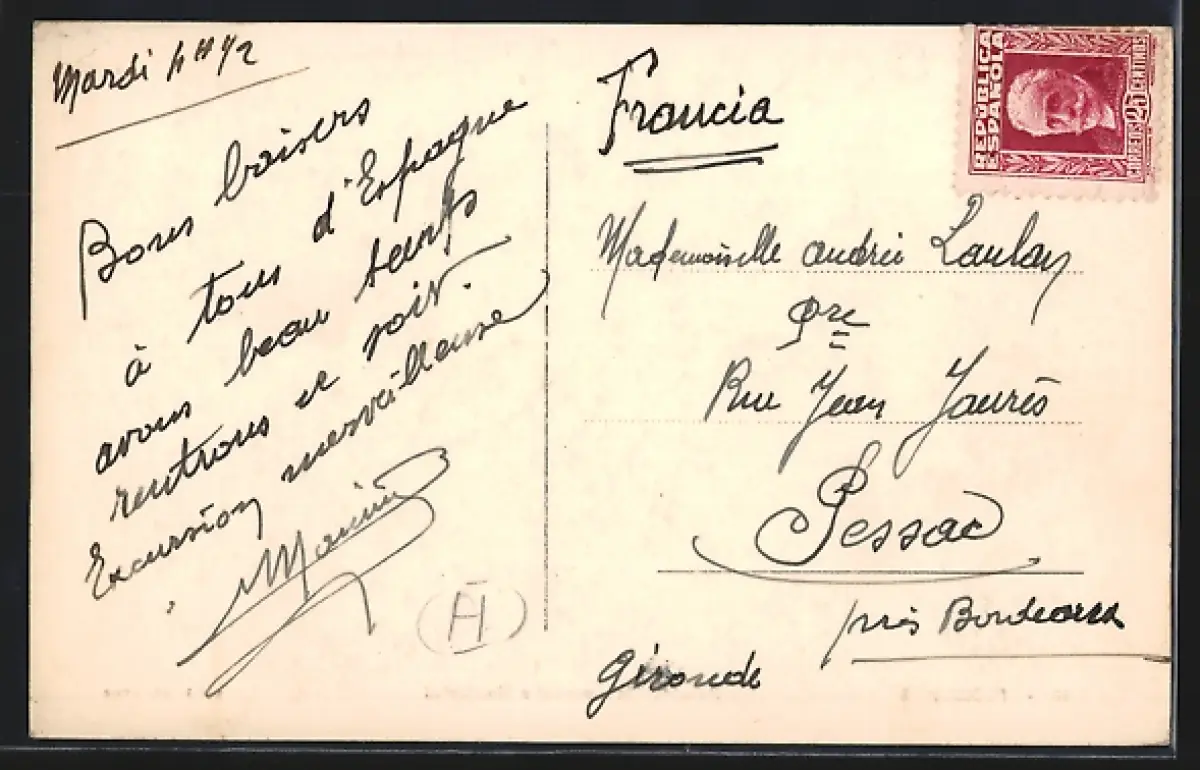 Mardi 4 H 1/2
Bons baisers
à tous d'Espagne
avons beau temps
rentrons ce soir.
Excursion merveilleuse
H
REPÚBLICA
ESPAÑOLA
CORREOS 25 CENTIMOS
Francia
Mademoiselle Andrée
Rue Jean Jaurès
Pessac
près Bordeaux
Gironde